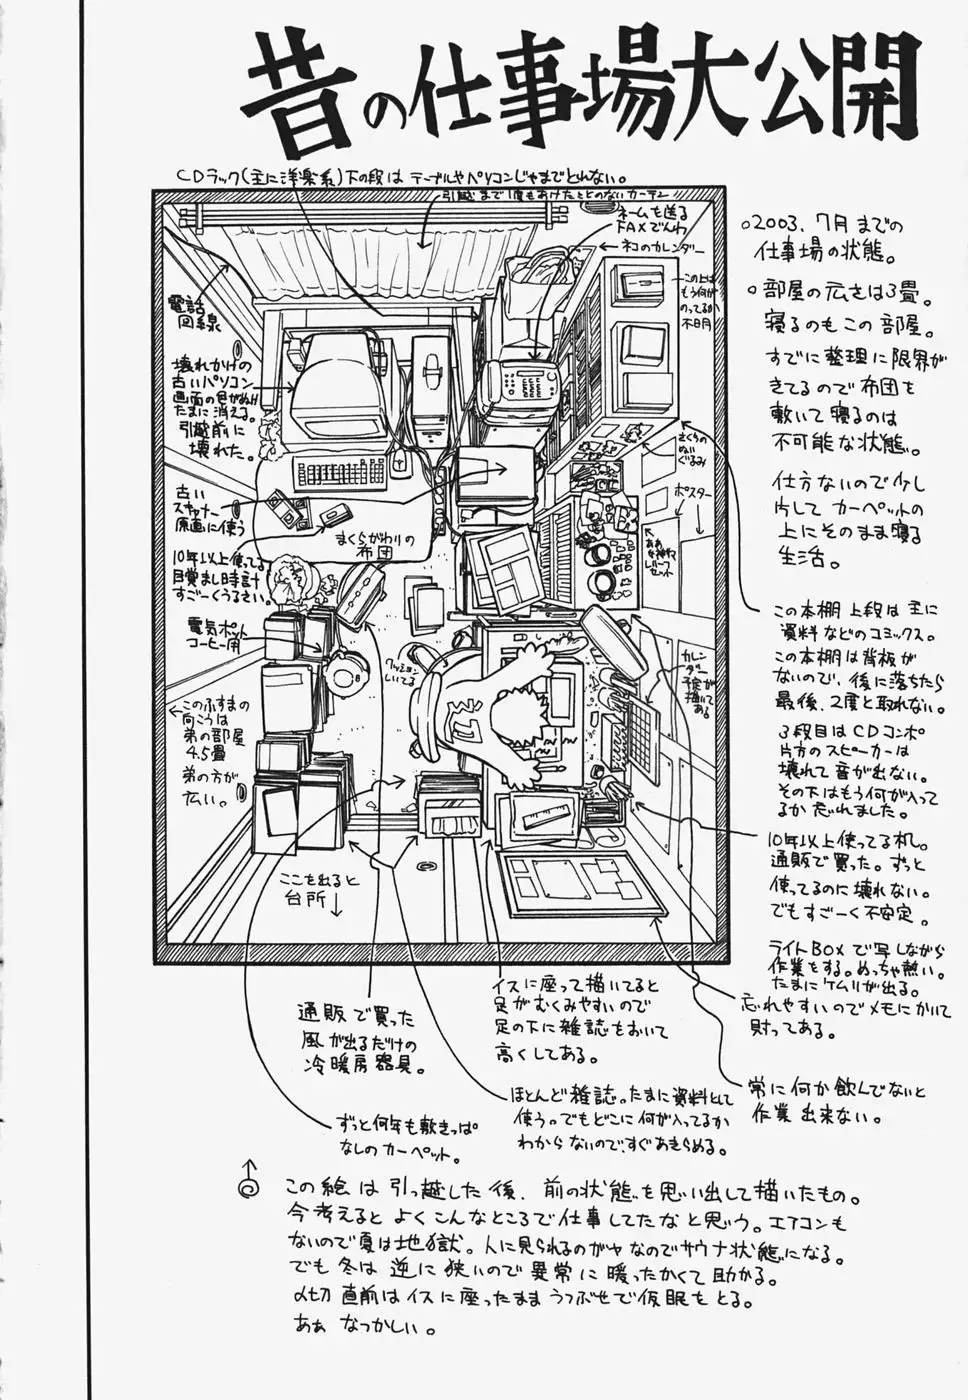 昔の仕事場大公開
CDラック(主に洋楽系)下の段は テーブルやパソコンじゃまでとれない。
引越まで1度もあけたことのないカーテン
ネームを送る
FAXでんわ
ネコのカレンダー
この上は
もう何が
のってるか
不明
電話
回線
壊れかけの
古いパソコン
画面の色がぬけ
たまに消える。
引越前に
壊れた。
古い
スキャナー
原画に使う
10年以上使ってる
目覚まし時計
すごーくうるさい。
電気ポット
コーヒー用
まくらがわりの
布団
さくらの
ぬいぐるみ
ポスター
クッション
しいてる
カレン
ダー
予定が
描いて
ある
このふすまの
向こうは
弟の部屋
4.5畳
弟の方が
広い。
ここを出ると
台所
○2003.7月までの
仕事場の状態。
○部屋の広さは3畳。
寝るのもこの部屋。
すでに整理に限界が
きてるので布団を
敷いて寝るのは
不可能な状態。
仕方ないので少し
片してカーペットの
上にそのまま寝る
生活。
この本棚上段は主に
資料などのコミックス。
この本棚は背板が
ないので、後に落ちたら
最後、2度と取れない。
3段目はCDコンポ
片方のスピーカーは
壊れて音が出ない。
その下はもう何が入って
るか忘れました。
10年以上使ってる机。
通販で買った。ずっと
使ってるのに壊れない。
でもすごーく不安定。
ライトBOXで写しながら
作業をする。めっちゃ熱い。
たまにケムリが出る。
忘れやすいのでメモにかいて
貼ってある。
常に何か飲んでないと
作業出来ない。
イスに座って描いてると
足がむくみやすいので
足の下に雑誌をおいて
高くしてある。
通販で買った
風が出るだけの
冷暖房器具。
ほとんど雑誌。たまに資料として
使う。でもどこに何が入ってるか
わからないので、すぐあきらめる。
ずっと何年も敷きっぱ
なしのカーペット。
この絵は引っ越した後、前の状態を思い出して描いたもの。
今考えるとよくこんなところで仕事してたなと思う。エアコンも
ないので夏は地獄。人に見られるのがヤなのでサウナ状態になる。
でも冬は逆に狭いので異常に暖ったかくて助かる。
〆切直前はイスに座ったままうつぶせで仮眠をとる。
あぁ なつかしい。